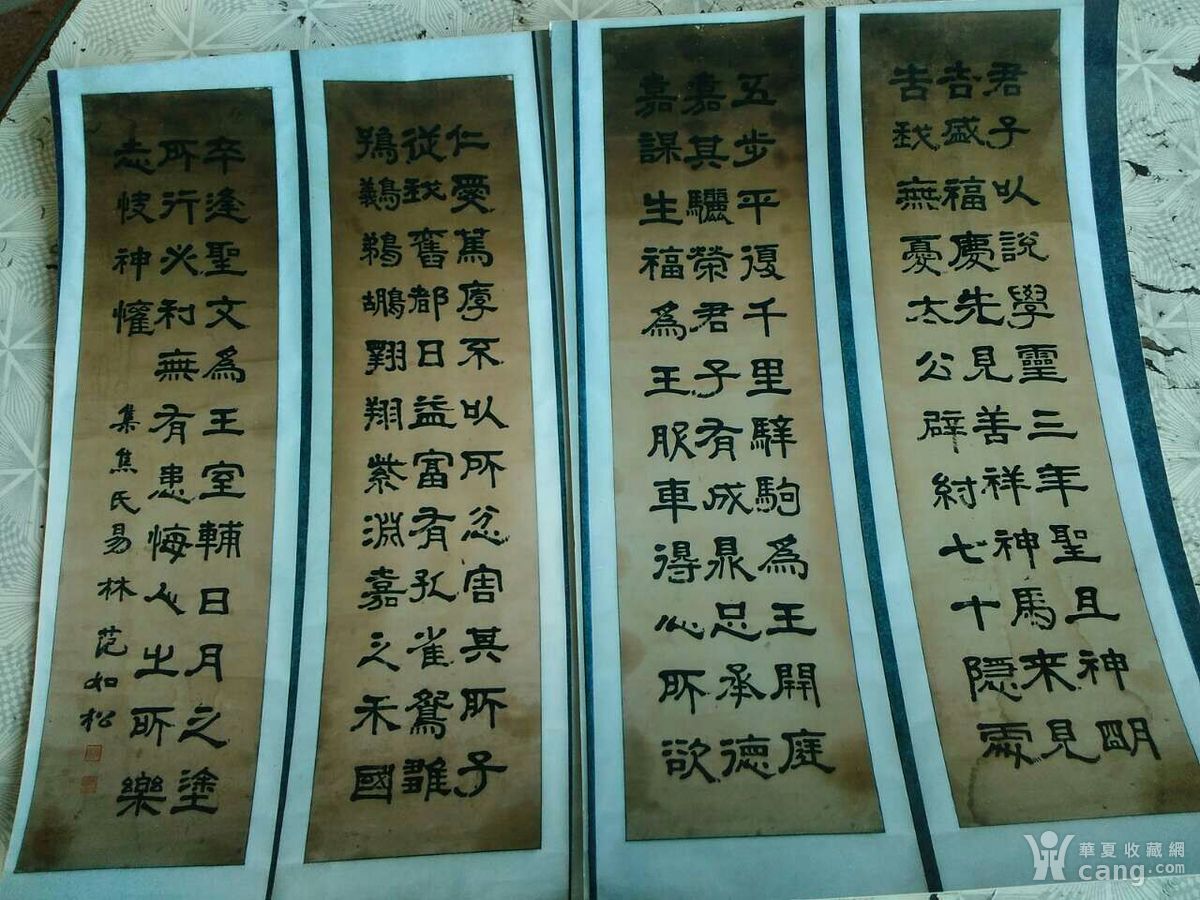 君子以說學靈三年聖且神明
告盛福慶先見善祥神馬來見
告我無憂太公辟紂七十隱處
五步平復千里騂駒為王開庭
嘉其驪榮君子有成鼎足承德
嘉謀生福為王服車得心所欲
仁愛篤厚不以所忿害其所子
從我舊都日益富有孔雀鴛雛
鵕鸃鵜鶘翱翔紫淵嘉之禾國
卒逢聖文為王室輔日月之塗
所行必利無有患悔心之所樂
志快神懽
集焦氏易林 范如松
華夏收藏網
cang.com